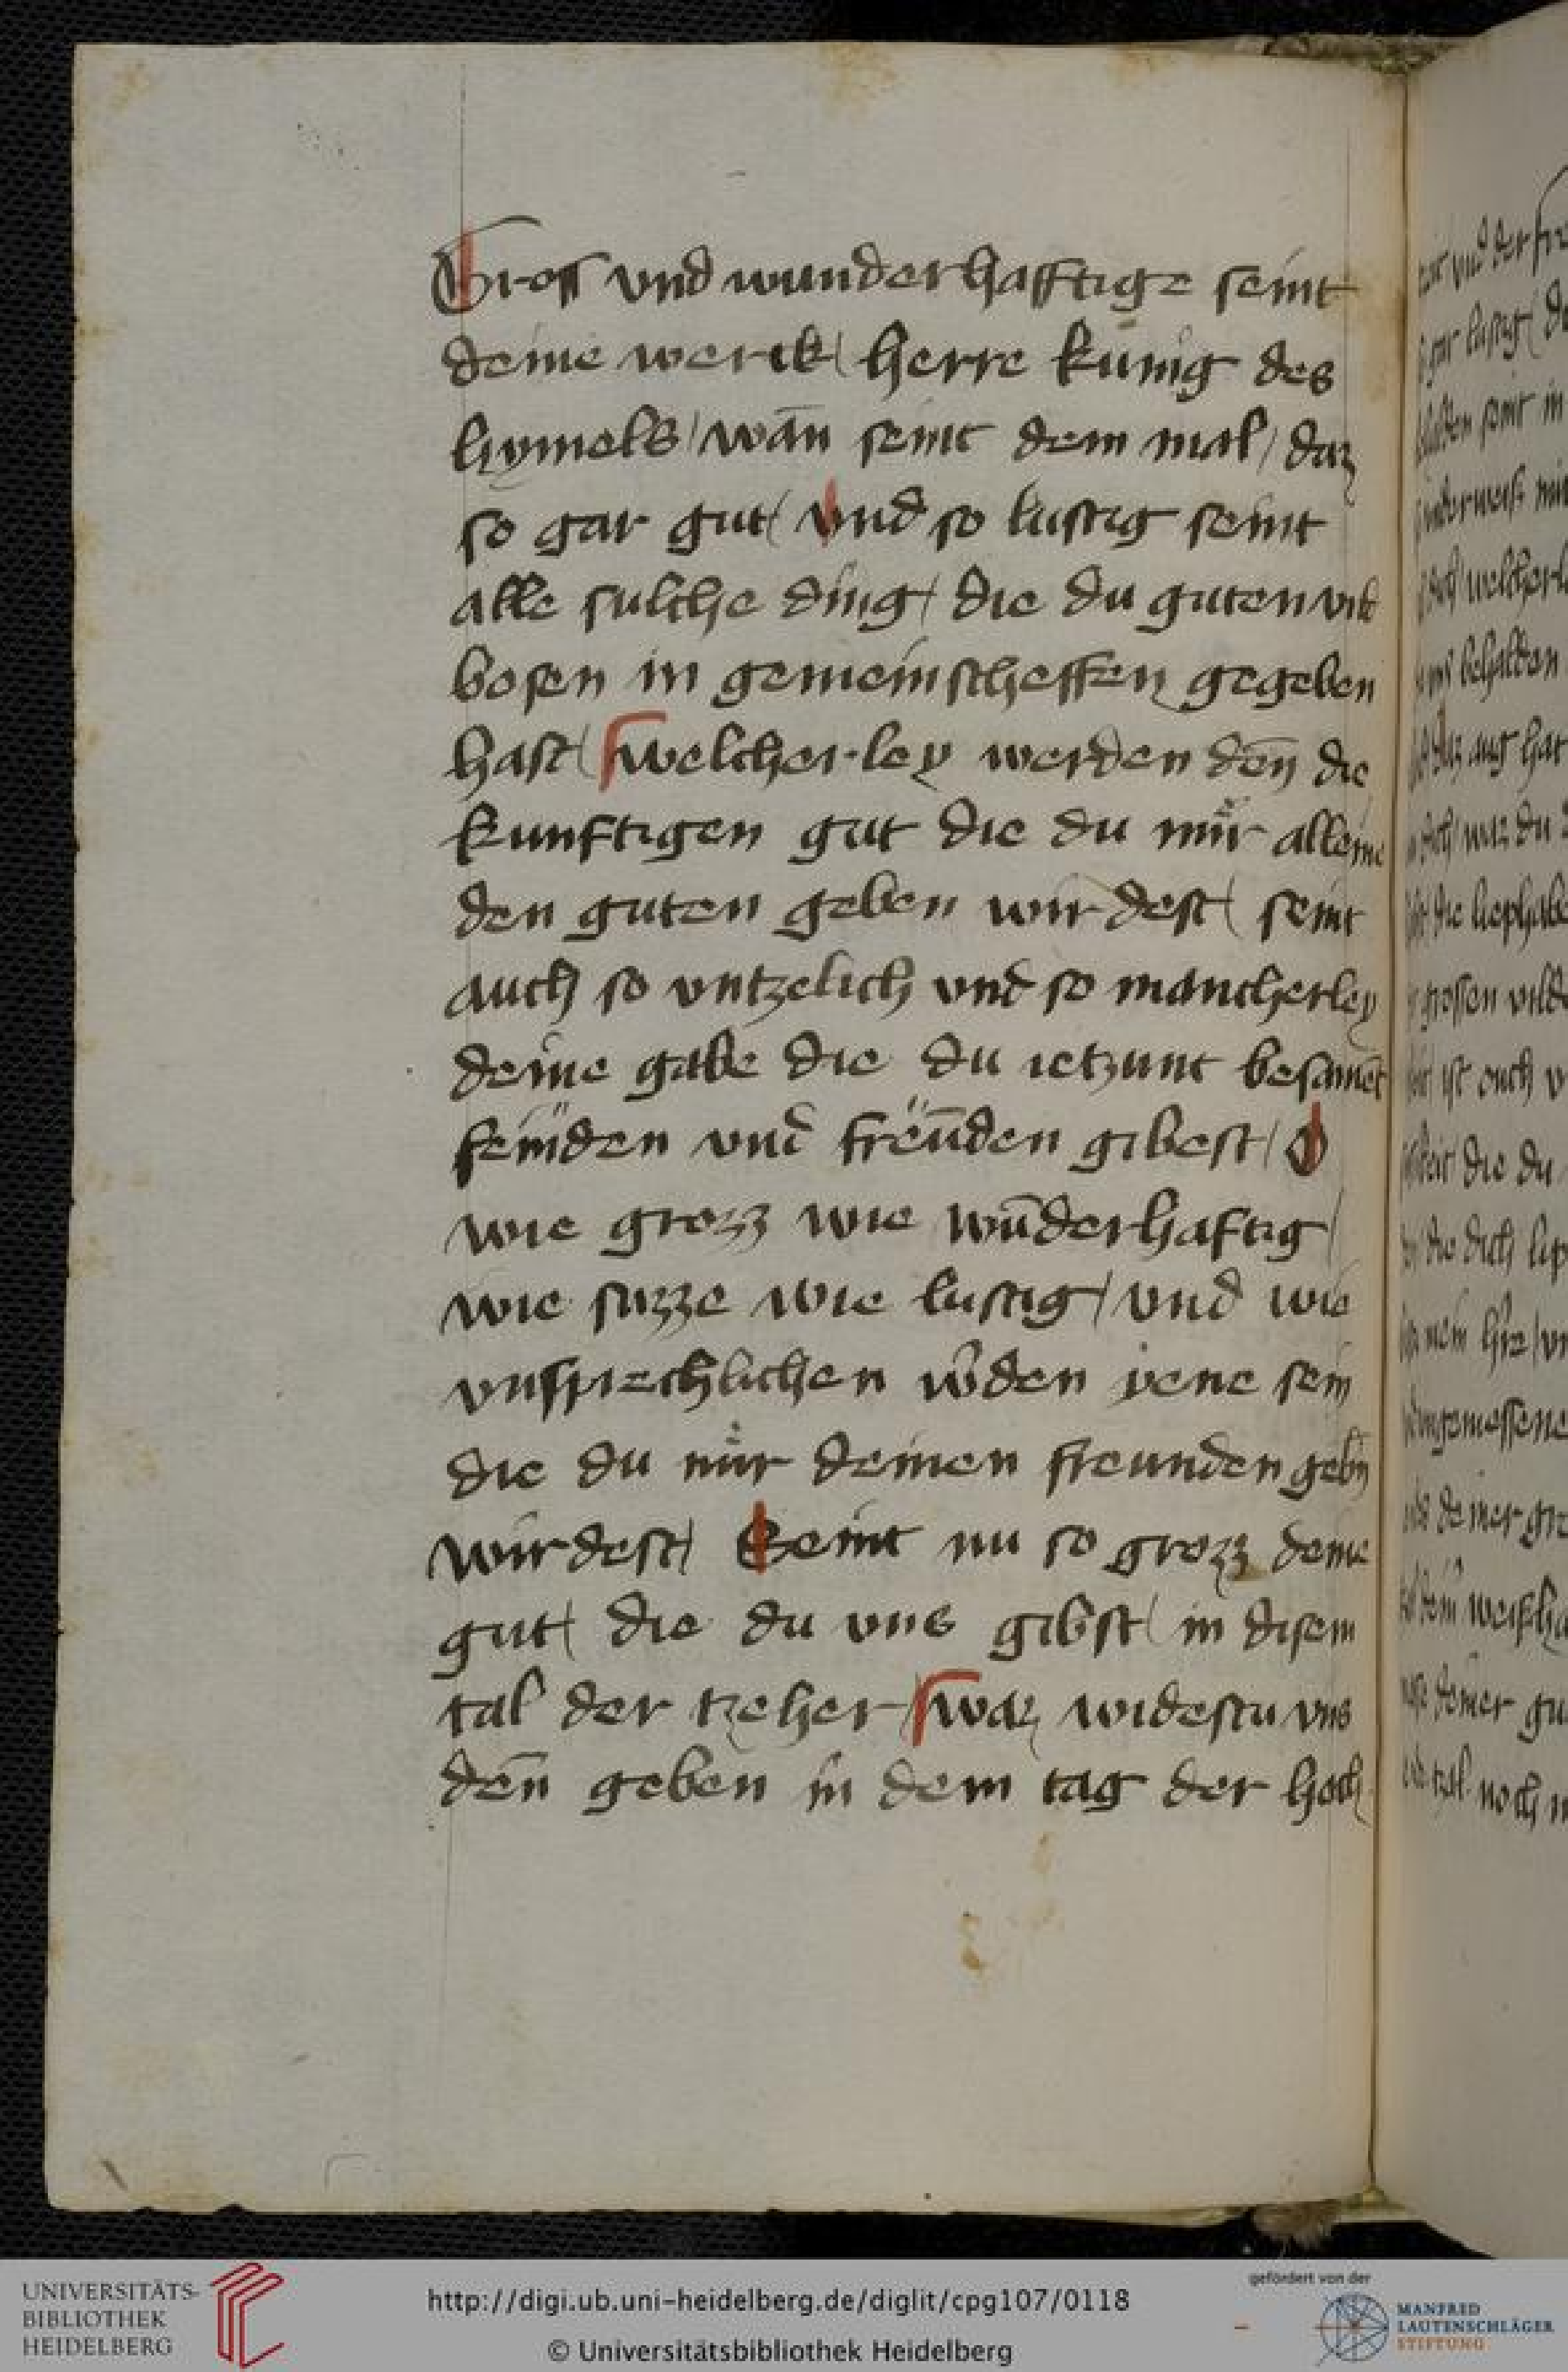 Gross vnd wunderhafftige seint
deine werck/ herre kunig des
hymels/ wān seint dem mal/ daz
so gar gut/ vnd so lustig seint
alle sulche ding/ die du guten vnd
bosen in gemeinscheffen gegeben
hast/ welcher-ley werden dēn die
kunftigen gut die du nuͤr alleine
den guten geben wirdest/ seint
auch so vntzelich vnd so mancherley
deine gabe die du ietzunt besamēt
feinden vnd freūden gibest/ O
wie grozz wie wūderhaftig/
wie suzze wie lustig/ vnd wie
vnsprechlichen w̄den yene sein
die du nuͤr deinen freunden gebn̄
wirdest/ Seint nu so grozz deine
gut/ die du vns gibst/ in disem
tal der tzeher/ waz widestu vns
dēn geben in dem tag der hoch
UNIVERSITÄTS-
BIBLIOTHEK
HEIDELBERG
http://digi.ub.uni-heidelberg.de/diglit/cpg107/0118
© Universitätsbibliothek Heidelberg
gefördert von der
MANFRED
LAUTENSCHLÄGER
STIFTUNG